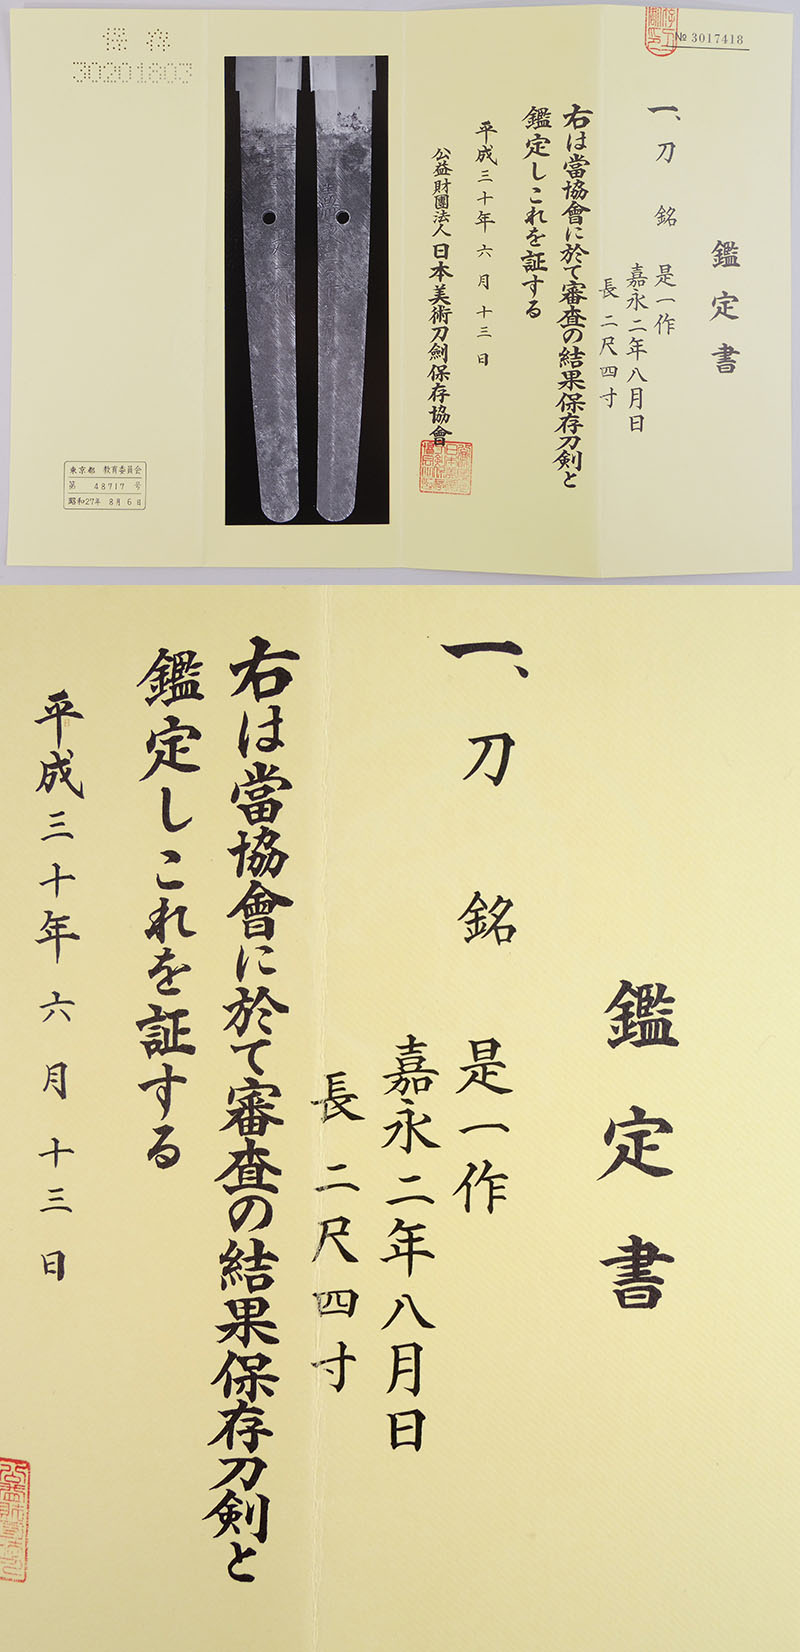 № 3017418
鑑定書
一、刀 銘 是一作
嘉永二年八月日
長 二尺四寸
右は當協會に於て審査の結果保存刀剣と
鑑定しこれを証する
平成三十年六月十三日
公益財團法人日本美術刀劍保存協會
保存
30201803
東京都 教育委員会
第 48717 号
昭和27年 8月 6日
鑑定書
一、刀 銘 是一作
嘉永二年八月日
長 二尺四寸
右は當協會に於て審査の結果保存刀剣と
鑑定しこれを証する
平成三十年六月十三日